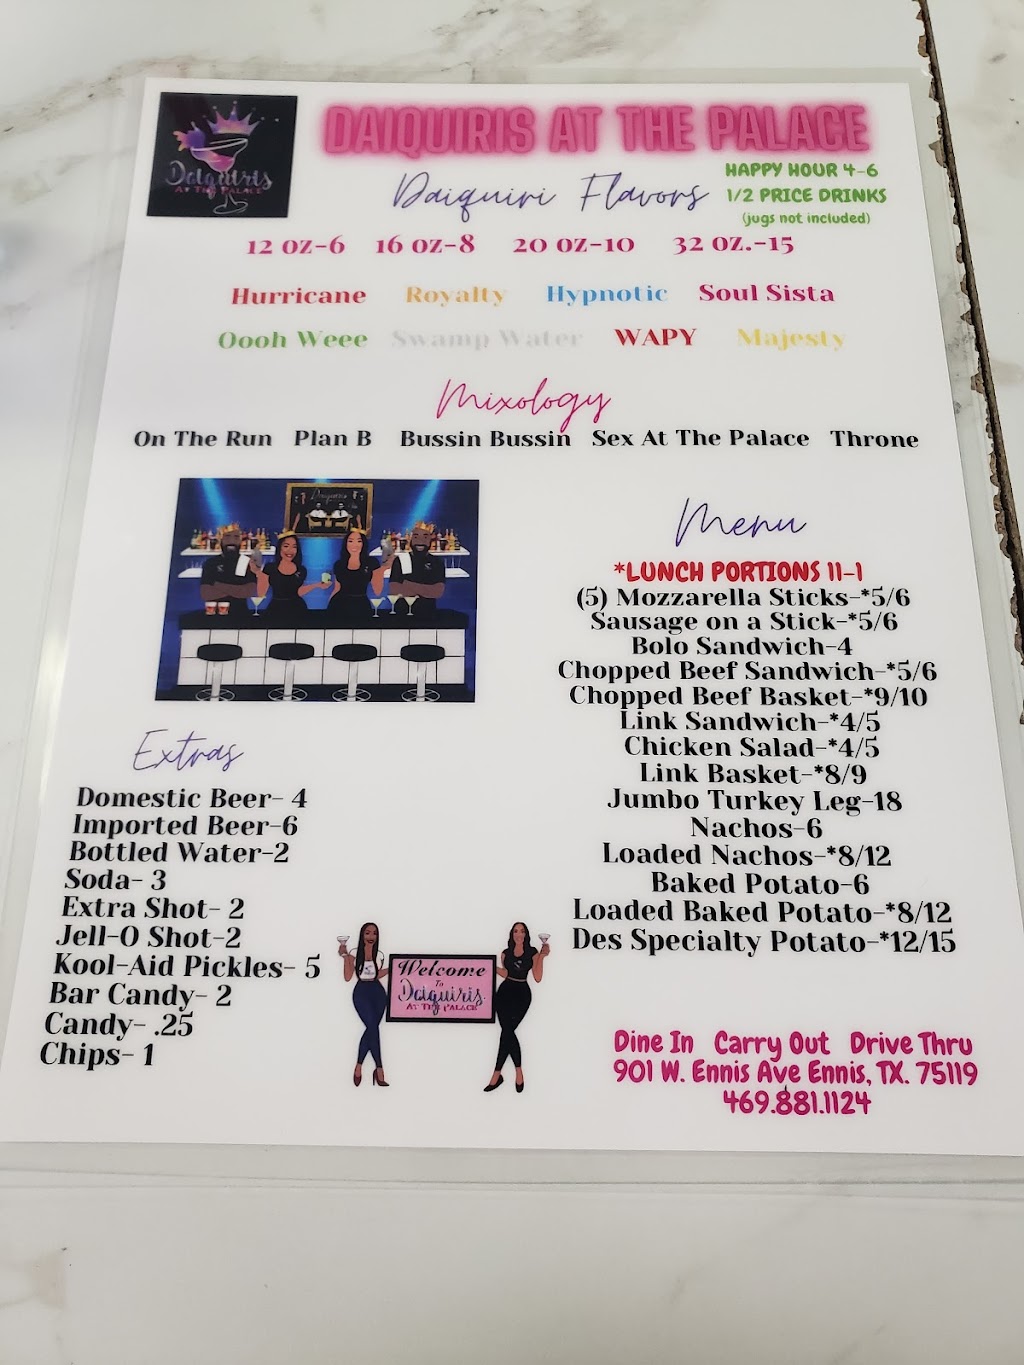 DAIQUIRIS AT THE PALACE
Daiquiris
AT THE PALACE
Daiquiri Flavors
HAPPY HOUR 4-6
1/2 PRICE DRINKS
(jugs not included)
12 oz-6 16 oz-8 20 oz-10 32 oz.-15
Hurricane Royalty Hypnotic Soul Sista
Oooh Weee Swamp Water WAPY Majesty
Mixology
On The Run Plan B Bussin Bussin Sex At The Palace Throne
Daiquiris
Menu
*LUNCH PORTIONS 11-1
(5) Mozzarella Sticks-*5/6
Sausage on a Stick-*5/6
Bolo Sandwich-4
Chopped Beef Sandwich-*5/6
Chopped Beef Basket-*9/10
Link Sandwich-*4/5
Chicken Salad-*4/5
Link Basket-*8/9
Jumbo Turkey Leg-18
Nachos-6
Loaded Nachos-*8/12
Baked Potato-6
Loaded Baked Potato-*8/12
Des Specialty Potato-*12/15
Extras
Domestic Beer- 4
Imported Beer-6
Bottled Water-2
Soda- 3
Extra Shot- 2
Jell-O Shot-2
Kool-Aid Pickles- 5
Bar Candy- 2
Candy- .25
Chips- 1
Welcome
To
Daiquiris
AT THE PALACE
Dine In Carry Out Drive Thru
901 W. Ennis Ave Ennis, TX. 75119
469.881.1124